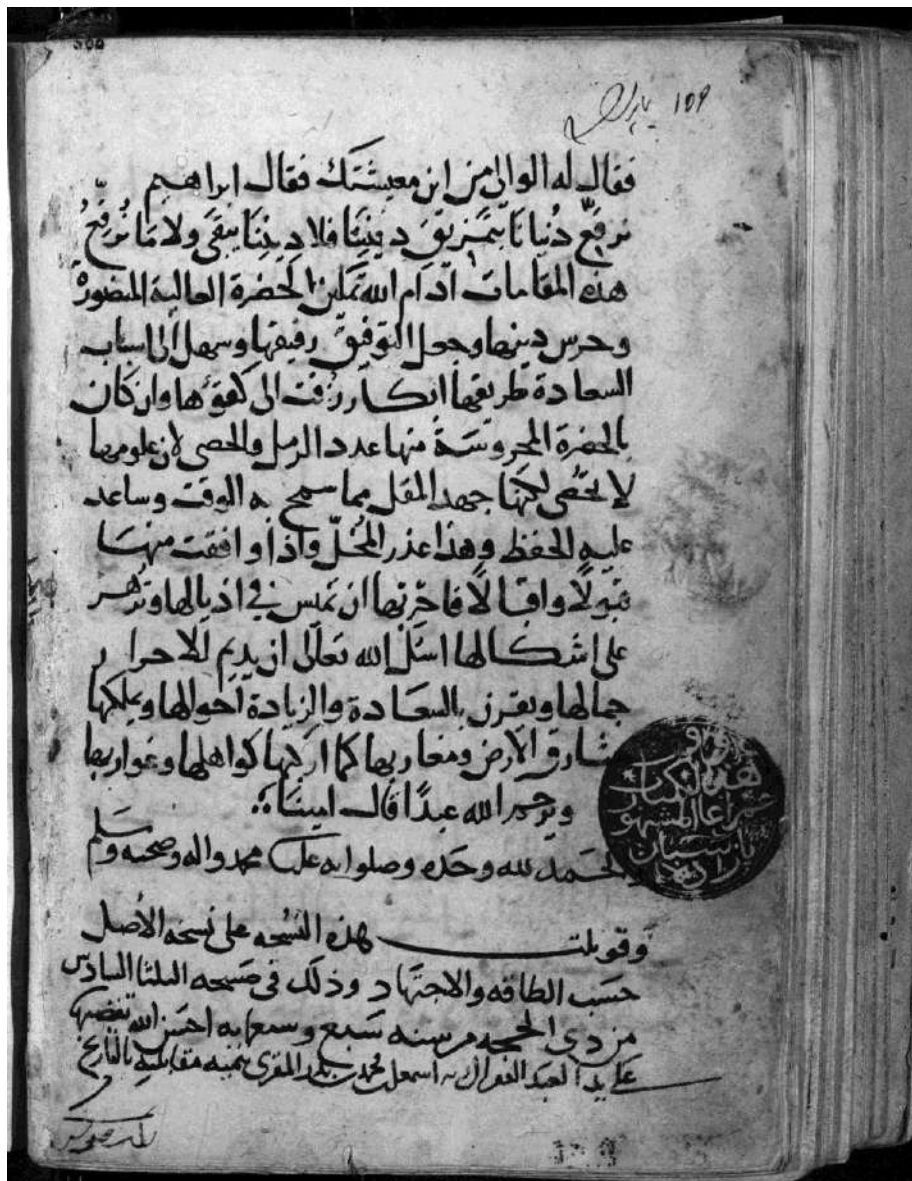 ١٥٩
فقال له الوالى من اين معيشتك فقال ابراهيم
نرقع دنيانا بتمزيق ديننا فلا ديننا يبقى ولا ما نرقع
هذه المقامات ادام الله تمكين الحضرة العالية المنصورة
وحرس دينها وجعل التوفيق رفيقها وسهل الى اسباب
السعادة طريقها زفت الى كفؤها وان كان
بالحضرة المحروسة منها عدد الرمل والحصى لان علومها
لا تحصى لكنها جهد المقل مما سمح به الوقت وساعد
عليه الحفظ وهذا عذر المخل واذا وافقت منها
قبولا واقبالا فاحر بها ان تميس فى اذيالها وتزهر
على اشكالها اسئل الله تعالى ان يديم للاحرار
جمالها ويقرن بالسعادة والزيادة احوالها ويملكها
مشارق الارض ومغاربها كما اركبها كواهلها وغواربها
ويرحم الله عبدا قال امينا
الحمد لله وحده وصلواته على محمد واله وصحبه وسلم
وقوبلت هذه النسخه على نسخه الأصل
حسب الطاقه والاجتهاد وذلك فى صبيحه الثلثا السادس
من ذى الحجه من سنه سبع وسبعمايه احسن الله تقضيها
على يد العبد الفقير الى الله اسمعيل بن محمد المقرى بالتاريخ
هذا الكتاب
المشهور